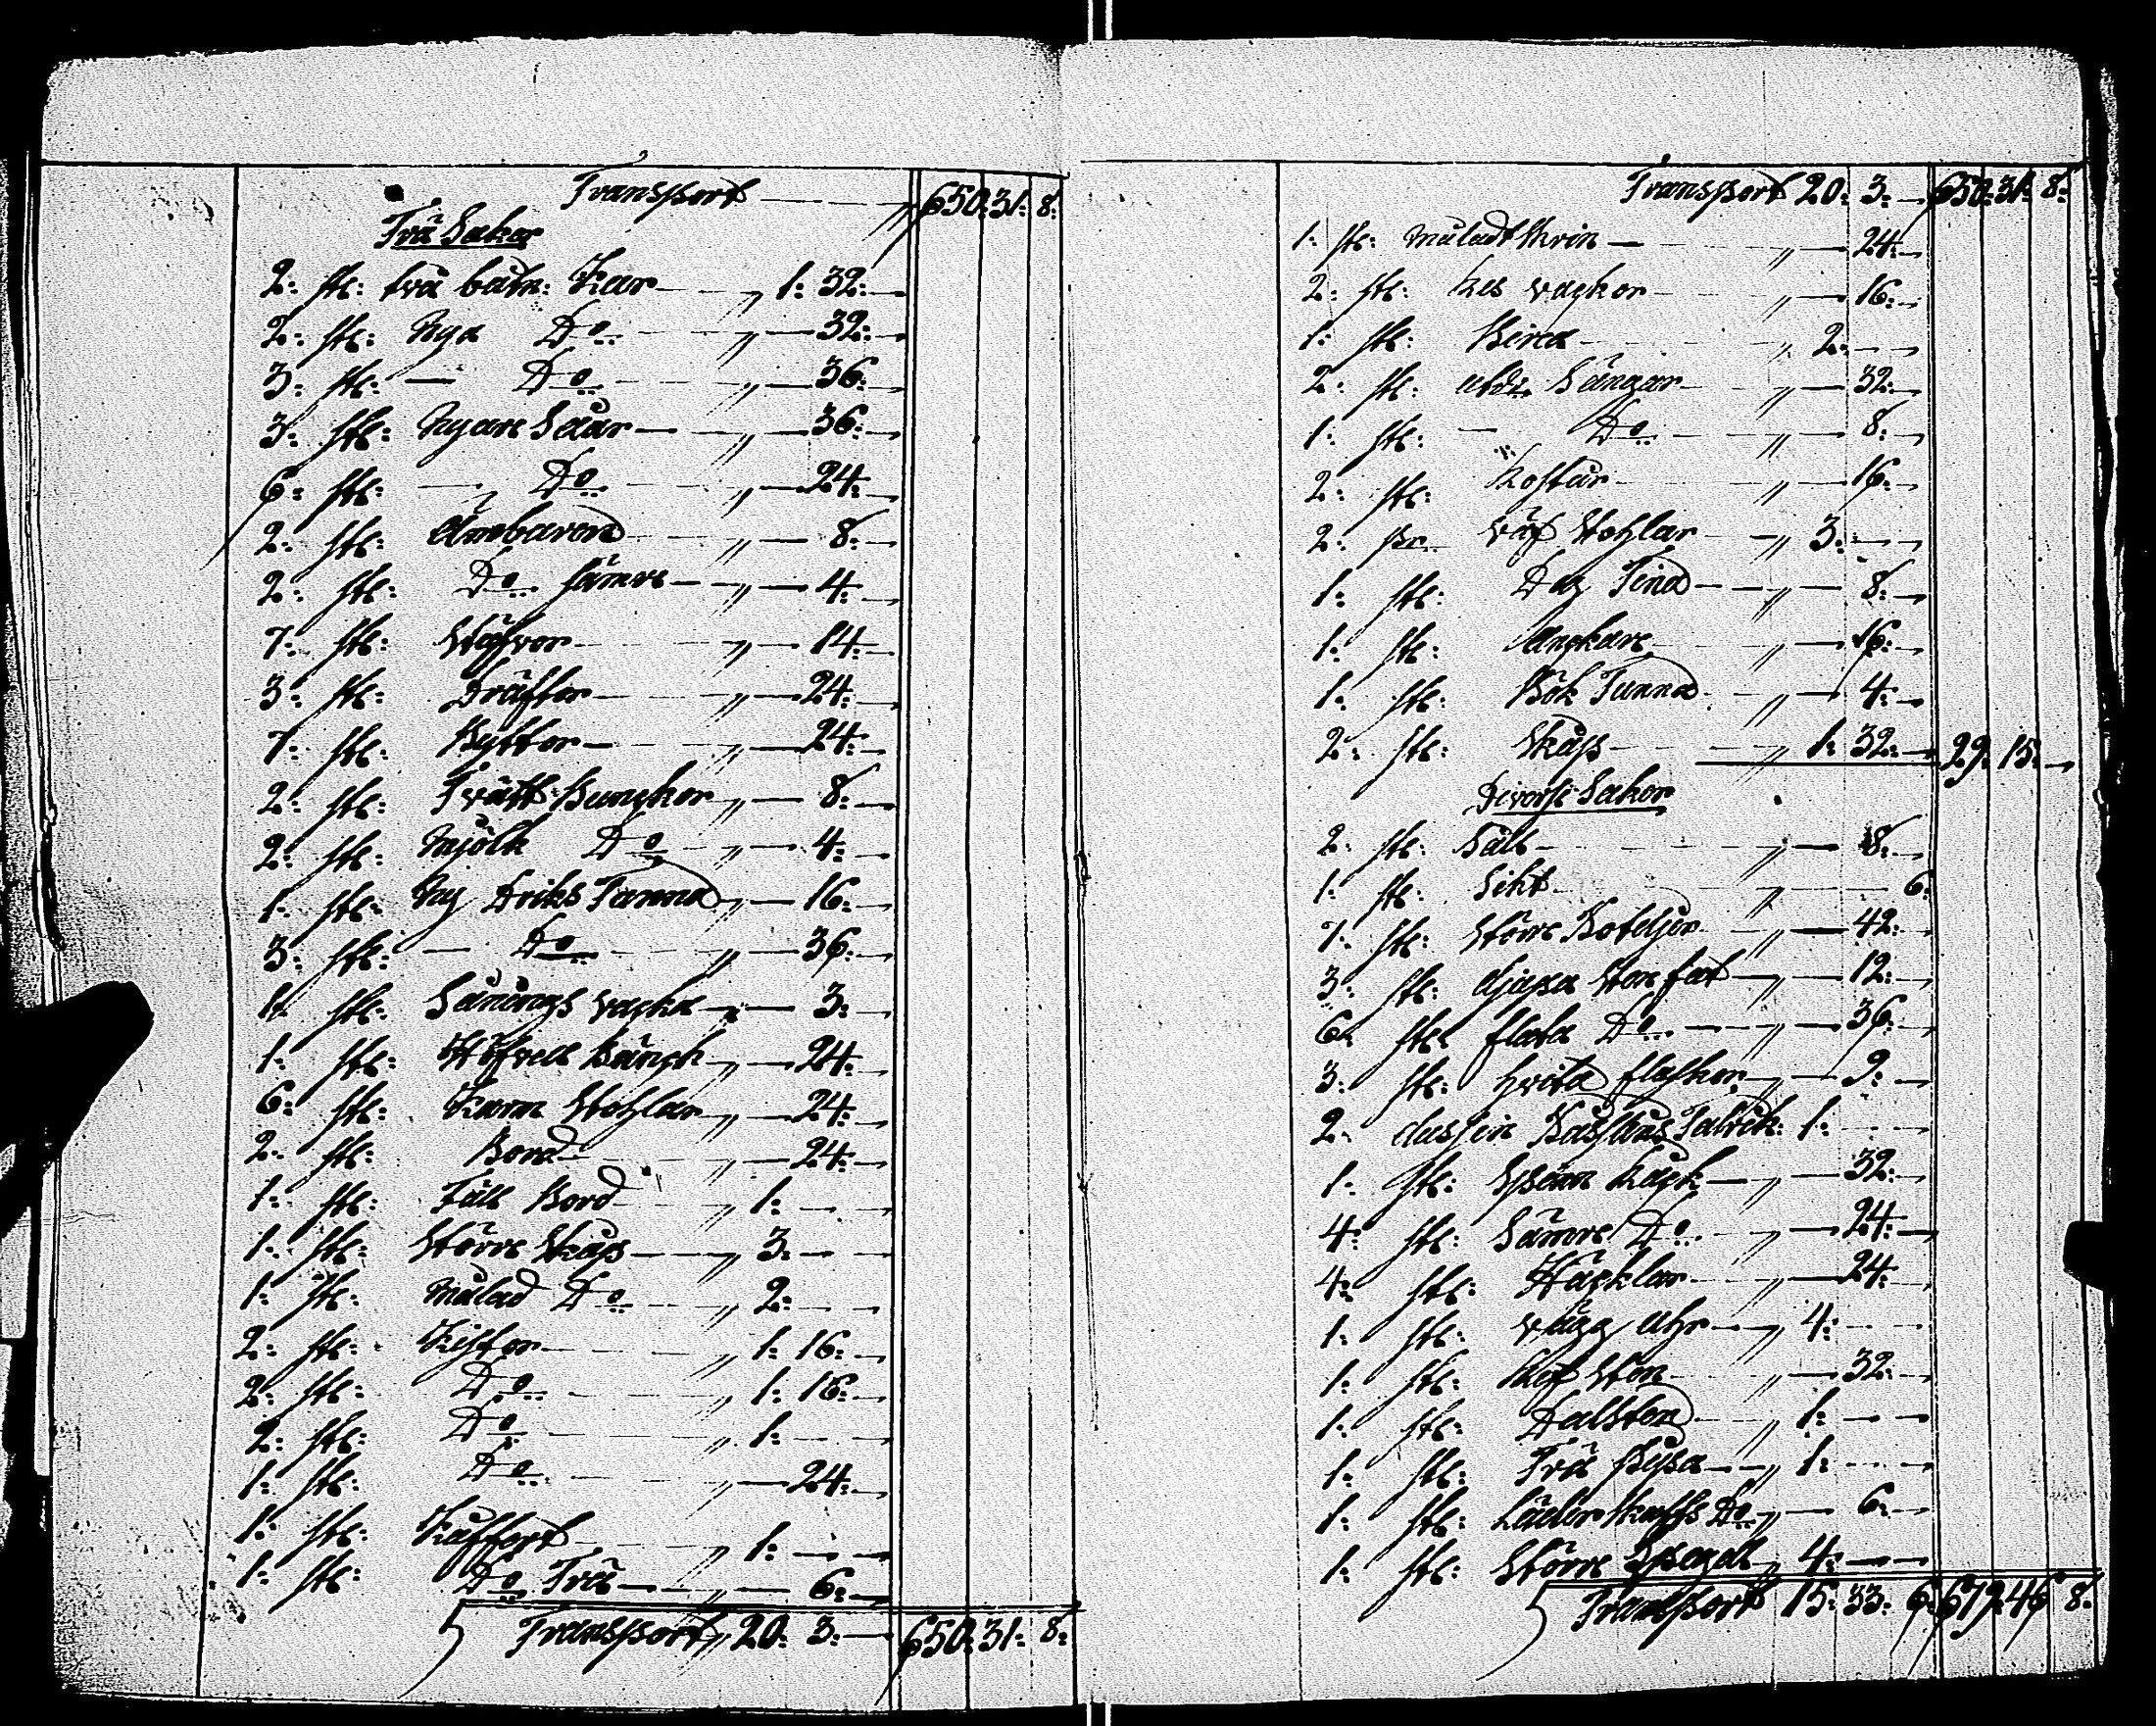 Transport — „ 650: 31: 8:
Trä Saker
2: st: två båtn: Kar — „ 1: 32: —
2: st: Nya Do — „ — 32: —
3: st: — Do — „ — 36: —
3: st: Nyare Såar — „ — 36: —
6: st: — Do — „ — 24: —
2: st: Ämbaren — „ — 8: —
2: st: Do sämre — „ — 4: —
7: st: Stäfvor — „ — 14: —
3: st: Dräftor — „ — 24: —
7: st: Byttor — „ — 24: —
2: st: Tvätt Bunckor „ — 8: —
2: st: Mjölk Do — „ — 4: —
1: st: Ny Driks Tunna „ — 16: —
3: st: — Do — „ — 36: —
1: st: Sånings vacka „ — 3: —
1: st: Höfvell Bänck „ — 24: —
6: st: Karm Stohlar „ — 24: —
2: st: Bord — „ — 24: —
1: st: Fäll Bord — „ 1: — —
1: st: Större Skåp — „ 3: — —
1: st: Målad Do — „ 2: — —
2: st: Kistor — „ 1: 16: —
2: st: Do — „ 1: 16: —
2: st: Do — „ 1: — —
1: st: Do — „ — 24: —
1: st: Kuffert — „ 1: — —
1: st: Do Trä — „ — 6: —
Transport „ 20: 3: — 650: 31: 8:
Transport 20: 3: — 650: 31: 8:
1: st: måladt Skrin — „ — 24: —
2: st: vackor — „ — 16: —
1: st: — „ 2: — —
2: st: Sängar — „ — 32: —
1: st: — Do — „ — 8: —
2: st: — „ — 16: —
2: pr väf Stohlar — „ 3: — —
1: st: Deg Tina — „ — 8: —
1: st: Anckare — „ — 16: —
1: st: Bök Tunna — „ — 4: —
2: st: Skåp — „ 1: 32: — 29: 15: —
Diverse Saker
2: st: Såll — „ — 8: —
1: st: Sikt — „ — — 6:
7: st: Större Boteljer — „ — 42: —
3: st: djupa Sten fat — „ — 12: —
6: st: flata Do — „ — 36: —
3: st: hvita flaskor „ — 9: —
2: dussin Talrick: 1: — —
1: st: Späen Råck — „ — 32: —
4: st: Sämre Do — „ — 24: —
4: st: Häcklar — „ — 24: —
1: st: vägg Uhr — „ 4: — —
1: st: Ref Sten — „ — 32: —
1: st: — „ 1: — —
1: st: Trä — „ 1: — —
1: st: Läder Do „ — 6: —
1: st: Större Spegell „ 4: — —
Transport 15: 33: 6: 679: 46: 8: